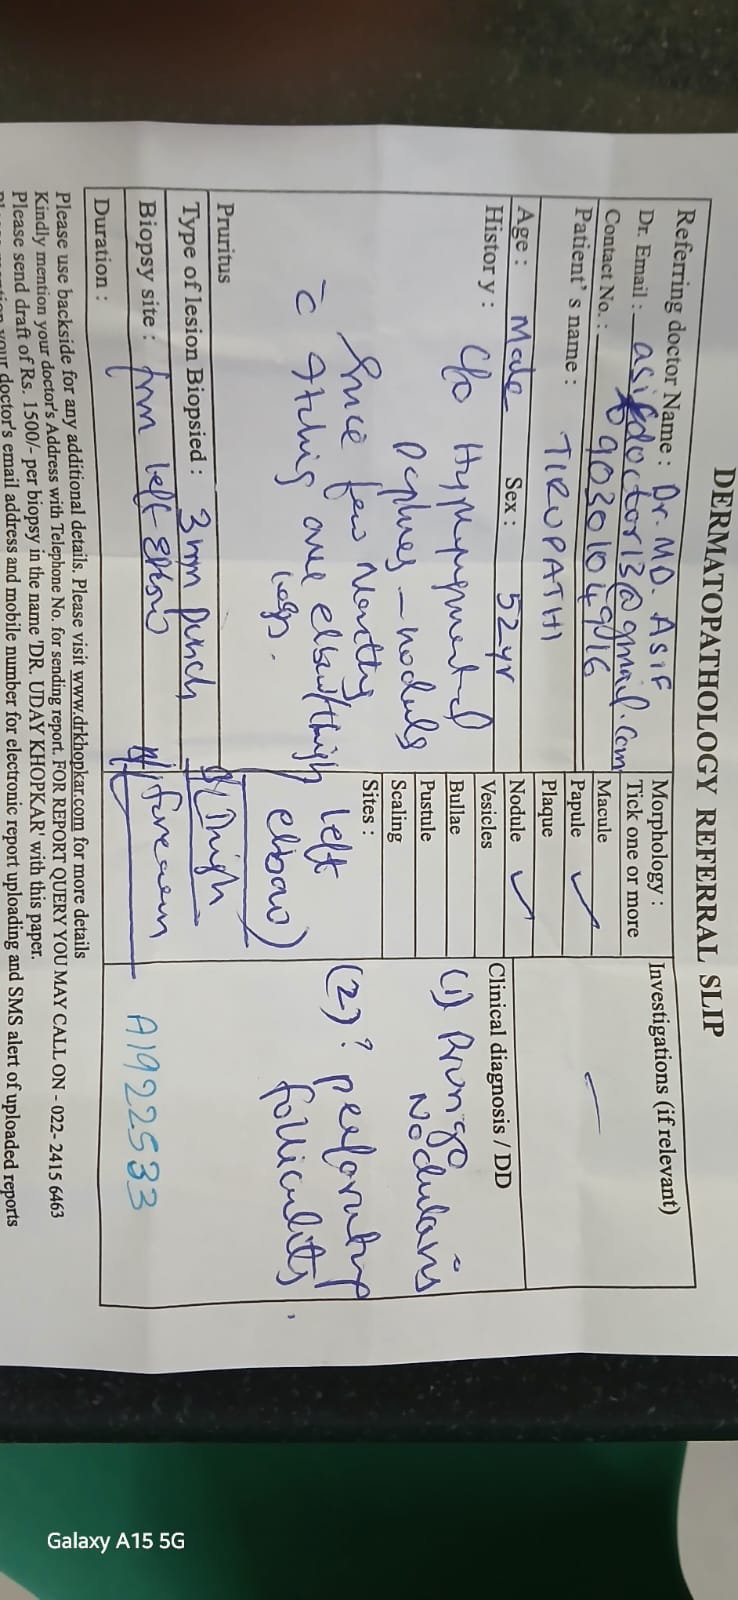 DERMATOPATHOLOGY REFERRAL SLIP
Referring doctor Name : Dr. MD. ASIF
Dr. Email : asifdoctor13@gmail.com
Contact No. : 9030104916
Patient's name : TIRUPATHI
Age : Male Sex : 52yr
History : c/o Hyperpigmented
papules - nodules
Since few months
c̄ itching over elbow/thigh
legs.
Pruritus
Type of lesion Biopsied : 3mm punch
Biopsy site : from left elbow
Duration :
Morphology :
Tick one or more
Macule
Papule ✓
Plaque
Nodule ✓
Vesicles
Bullae
Pustule
Scaling
Sites :
left
elbow)
Thigh
forearm
Investigations (if relevant)
—
Clinical diagnosis / DD
(1) Prurigo
Nodularis
(2) ? perforating
folliculitis.
A1922533
Please use backside for any additional details. Please visit www.drkhopkar.com for more details
Kindly mention your doctor's Address with Telephone No. for sending report. FOR REPORT QUERY YOU MAY CALL ON - 022- 2415 6463
Please send draft of Rs. 1500/- per biopsy in the name 'DR. UDAY KHOPKAR' with this paper.
your doctor's email address and mobile number for electronic report uploading and SMS alert of uploaded reports
Galaxy A15 5G